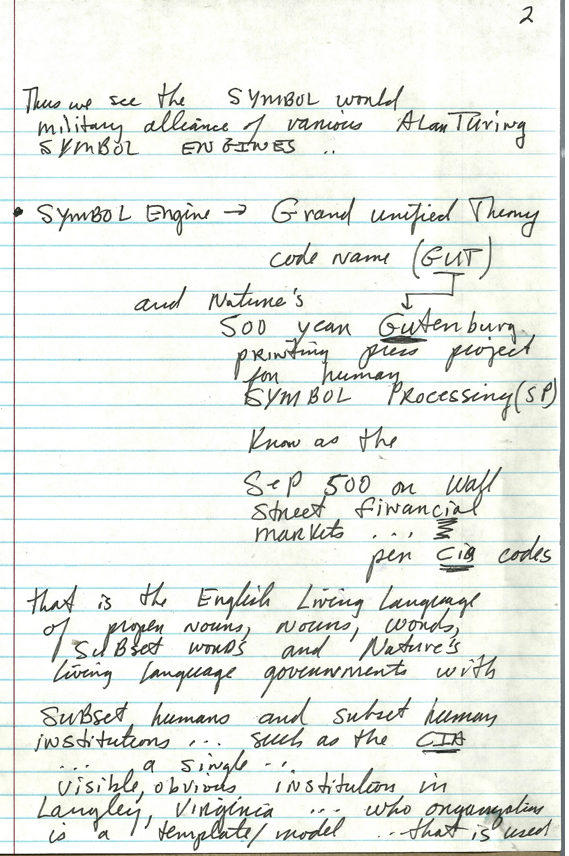 2
Thus we see the SYMBOL world
military alliance of various Alan Turing
SYMBOL ENGINES ..
• SYMBOL Engine → Grand unified Theory
code name (GUT)
and Nature's
500 year Gutenburg
printing press project
for human
SYMBOL Processing (SP)
Know as the
S&P 500 on Wall
Street financial
markets ...
pen CIA codes
that is the English Living Language
of proper nouns, nouns, words,
SUBset words and Nature's
living language governments with
Subset humans and subset human
institutions ... such as the CIA
... a single ..
visible, obvious institution in
Langley, Virginia ... who organization
is a template/model ... that is used